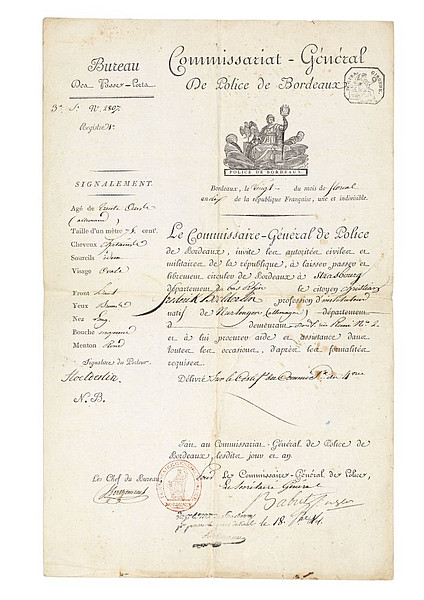 Bureau
Des Passe-Ports
3e. S. N°. 1897
Registre
SIGNALEMENT.
Agé de trente
(allemand)
Taille d'un mètre 76 cent.
Cheveux chatains
Sourcils idem
Visage Ovale
Front haut
Yeux bruns
Nez long
Bouche moyenne
Menton Rond
Signature du Porteur.
Hoelderlin
N. B.
Commissariat-Général
De Police de Bordeaux
GIRONDE
POLICE DE BORDEAUX.
Bordeaux, le vingt du mois de floréal
an dix de la république Française, une et indivisible.
Le Commissaire-Général de Police
de Bordeaux, invite les autorités civiles et
militaires de la république, à laisser passer et
librement circuler de Bordeaux à Strasbourg
département du bas Rhin le citoyen
frederick Hoelderlin profession d'instituteur
natif de (allemagne) département
d demeurant
et à lui procurer aide et assistance dans
toutes les occasions, d'après les formalités
requises.
Délivré sur le Certif. du Commre. de
Fait au Commissariat-Général de Police de
Bordeaux, lesdits jour et an.
Les Chef du Bureau, pour Le Commissaire-Général de Police,
Le Secrétaire Général
18